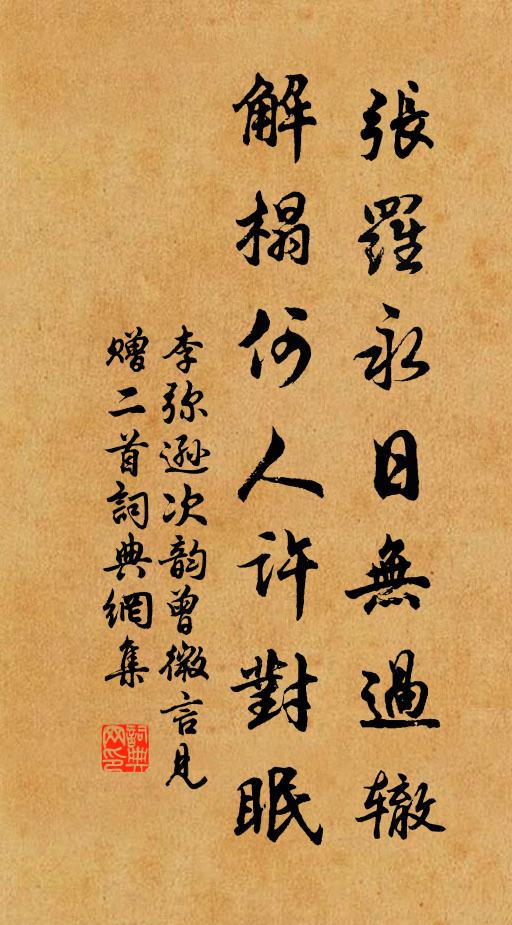 張羅永日無過辙
解榻何人許對眠
李弥遜次韵曾徽言見
赠二首詞典網集
詞典
网印